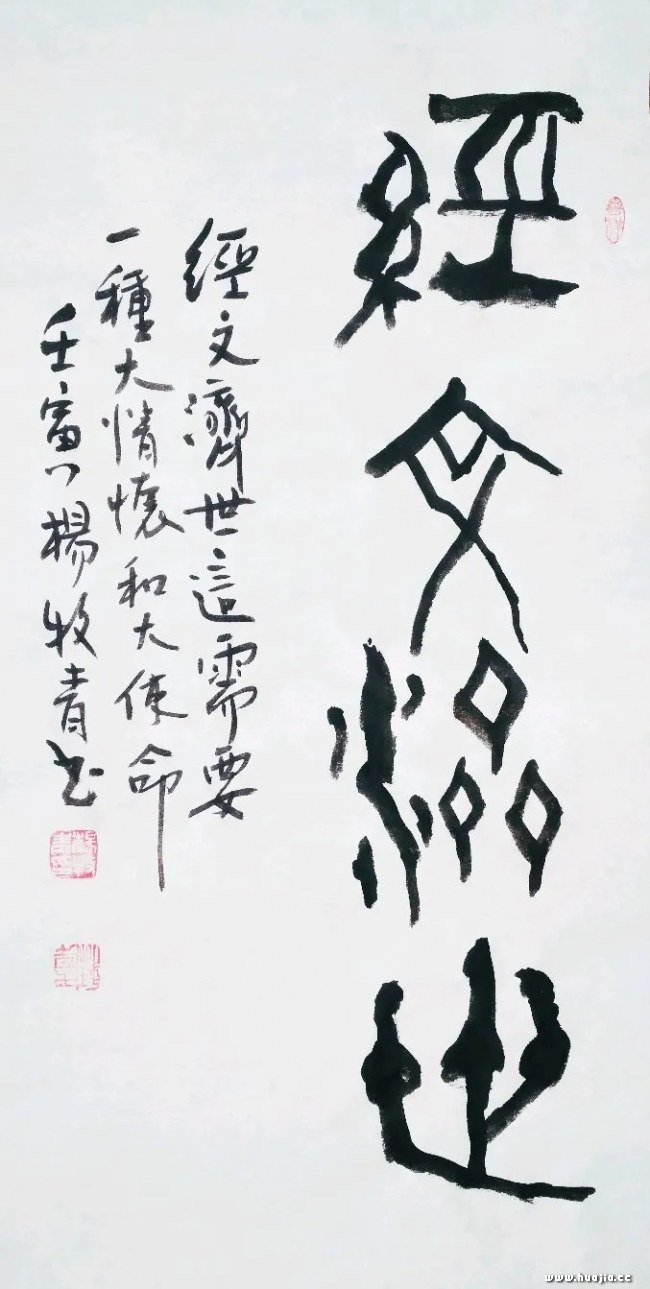 經文濟世
經文濟世這需要
一種大情懷和大使命
壬寅 楊牧青書
www.huajia.cc